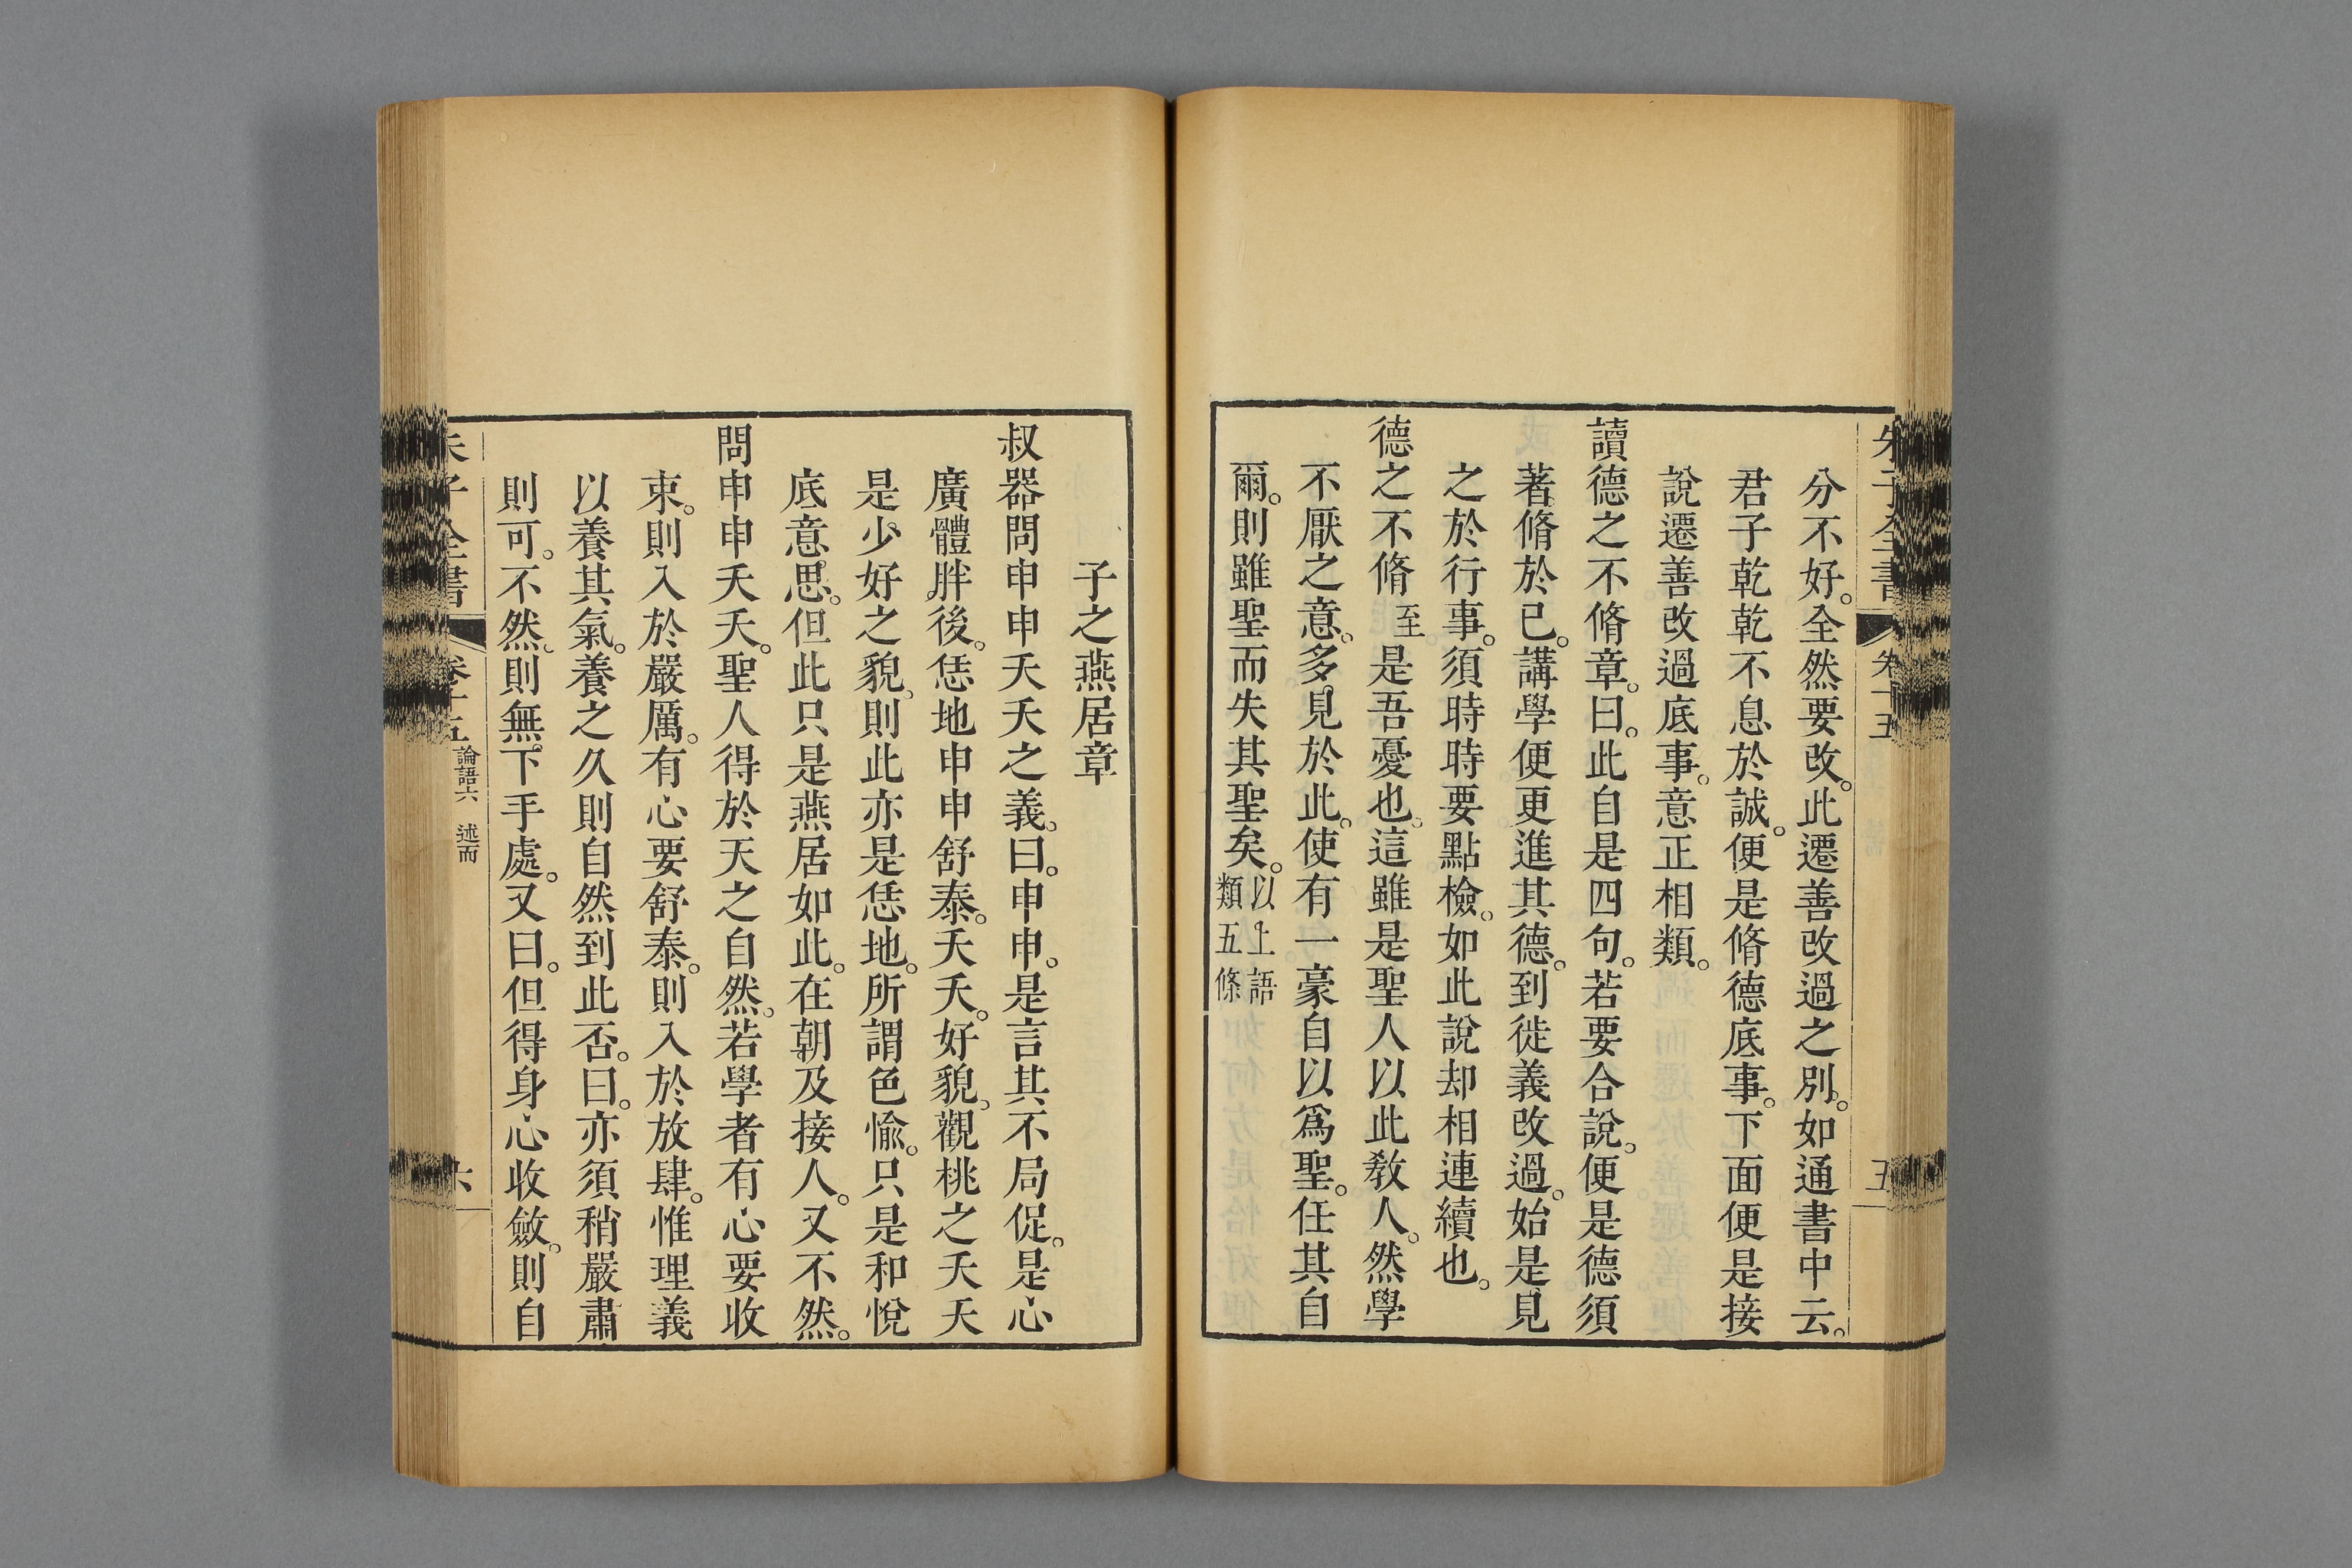 朱子全書 卷十五 五
分不好。全然要改。此遷善改過之別。如通書中云。
君子乾乾不息於誠。便是脩德底事。下面便是接
說遷善改過底事。意正相類。
讀德之不脩章。曰。此自是四句。若要合說。便是德須
著脩於已。講學便更進其德。到徙義改過。始是見
之於行事。須時時要點檢。如此說却相連續也。
德之不脩至是吾憂也。這雖是聖人以此教人。然學
不厭之意。多見於此。使有一豪自以爲聖。任其自
爾。則雖聖而失其聖矣。以上語類五條
子之燕居章
叔器問申申夭夭之義。曰。申申。是言其不局促。是心
廣體胖後。恁地申申舒泰。夭夭。好貌。觀桃之夭夭
是少好之貌。則此亦是恁地。所謂色愉。只是和悅
底意思。但此只是燕居如此。在朝及接人。又不然。
問申申夭夭。聖人得於天之自然。若學者有心要收
束。則入於嚴厲。有心要舒泰。則入於放肆。惟理義
以養其氣。養之久則自然到此否。曰。亦須稍嚴肅
則可。不然。則無下手處。又曰。但得身心收斂。則自
朱子全書 卷十五 論語六 述而 六